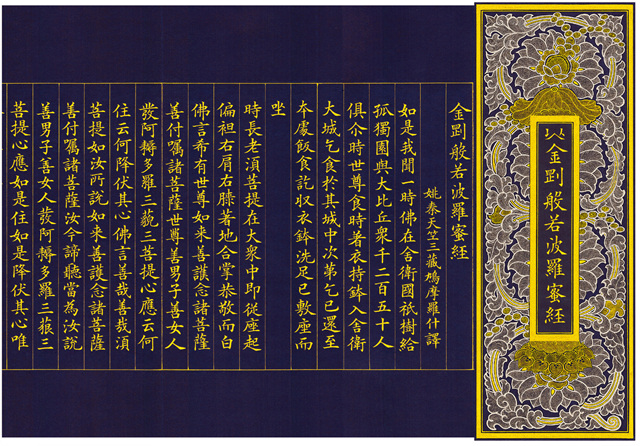 金剛般若波羅蜜経
金剛般若波羅蜜経
姚秦天竺三藏鳩摩羅什譯
如是我聞一時佛在舍衛國祇樹給
孤獨園與大比丘衆千二百五十人
俱尒時世尊食時著衣持鉢入舍衛
大城乞食於其城中次第乞已還至
本處飯食訖収衣鉢洗足已敷座而
坐
時長老湏菩提在大衆中即從座起
偏袒右肩右膝著地合掌恭敬而白
佛言希有世尊如来善護念諸菩薩
善付囑諸菩薩世尊善男子善女人
發阿耨多羅三藐三菩提心應云何
住云何降伏其心佛言善哉善哉湏
菩提如汝所說如来善護念諸菩薩
善付囑諸菩薩汝今諦聽當為汝說
善男子善女人發阿耨多羅三藐三
菩提心應如是住如是降伏其心唯